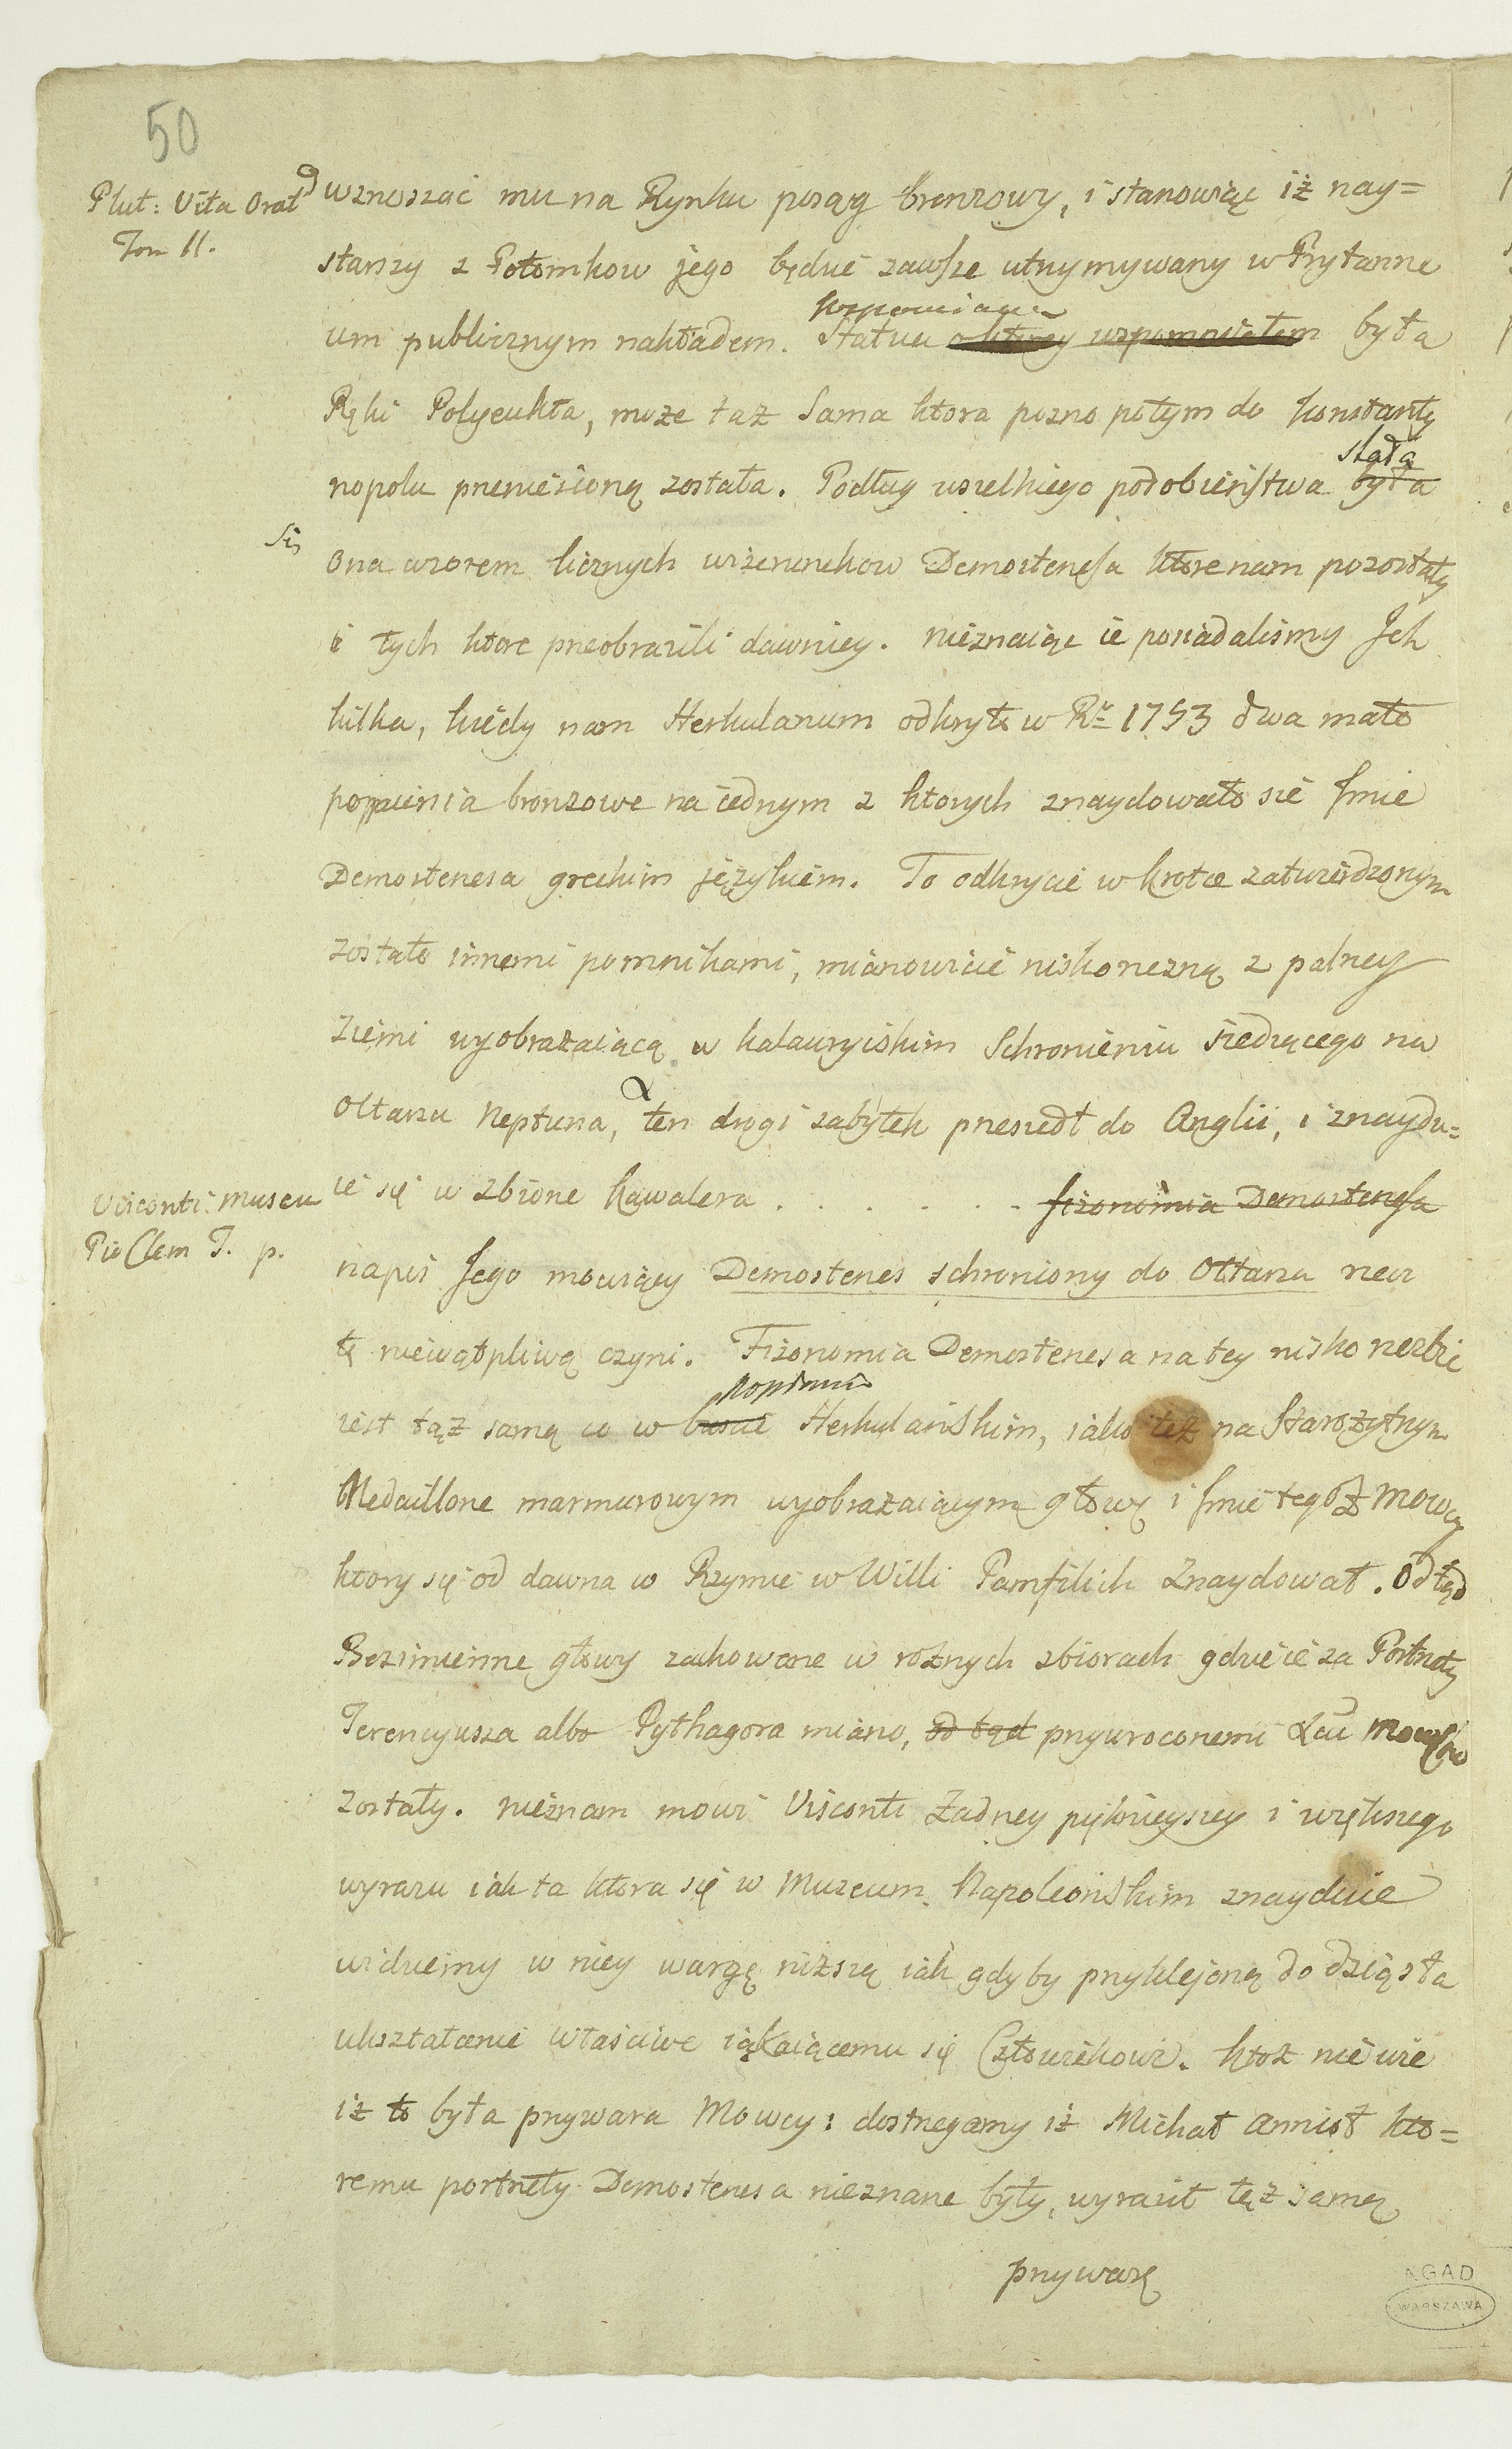 50
Plut: Vita Orat
Tom II.
wznoszać mu na Rynku posąg bronzowy, i stanowiąc iż nay=
starszy z Potomkow jego będzie zawsze utrzymywany w Prytanne
um publicznym nakładem. Statua o ktorey wspomniałem była
Ręki Polyeukta, może taż sama ktora pozno potym do Konstanty
nopolu przeniesioną została. Podług wszelkiego podobieństwa była
stała
Się
ona wzorem licznych wizerunkow Demostenesa ktore nam pozostały
i tych ktore przeobrazili dawniey. nieznaiąc ie posiadalismy Ich
kilka, kiedy nam Herkulanum odkryło w Rº 1753 dwa mało
popiersia bronzowe na iednym z ktorych znaydowało się Imie
Demostenesa greckim językiem. To odkrycie w krotce zatwierdzonym
zostało innemi pomnikami, mianowicie niskorzezną z palney
ziemi wyobrażaiącą w kalauryiskim Schronieniu siedzącego na
Ołtarzu Neptuna, ten drogi zabytek przeszedł do Anglii, i znaydu=
Visconti: Museu
Pio Clem T. p.
ie się w zbiorze kawalera . . . . . . fizonomia Demostenesa
napis Jego mowiący Demostenes schroniony do Ołtarza rzecz
tę niewątpliwą czyni. Fizonomia Demostenesa na tey niskorzezbie
iest taż samą co w buscie Herkulańskim, iako też na Starożytnym
popiersiu
Medaillonie marmurowym wyobrażaiącym głowę i Imie tegoż Mowcy
ktory się od dawna w Rzymie w Willi Pamfilich znaydował. Odtąd
Bezimienne głowy zachowane w rożnych zbiorach gdzie ie za Portrety
Terencyusza albo Pythagora miano, od tąd przywroconemi Mowcow
zostały. nieznam mowi Visconti żadney pięknieyszey i większego
wyrazu iak ta ktora się w Muzeum Napoleońskim znayduie
widziemy w niey wargę niższą iak gdyby przyklejoną do dziąsła
ukształcenie właściwe iąkaiącemu się Człowiekowi. ktoż nie wie
iż to była przywara Mowcy: dostrzegamy iż Michał annioł kto=
remu portrety Demostenesa nieznane były, wyraził tęż samą
przywarę
AGAD
WARSZAWA